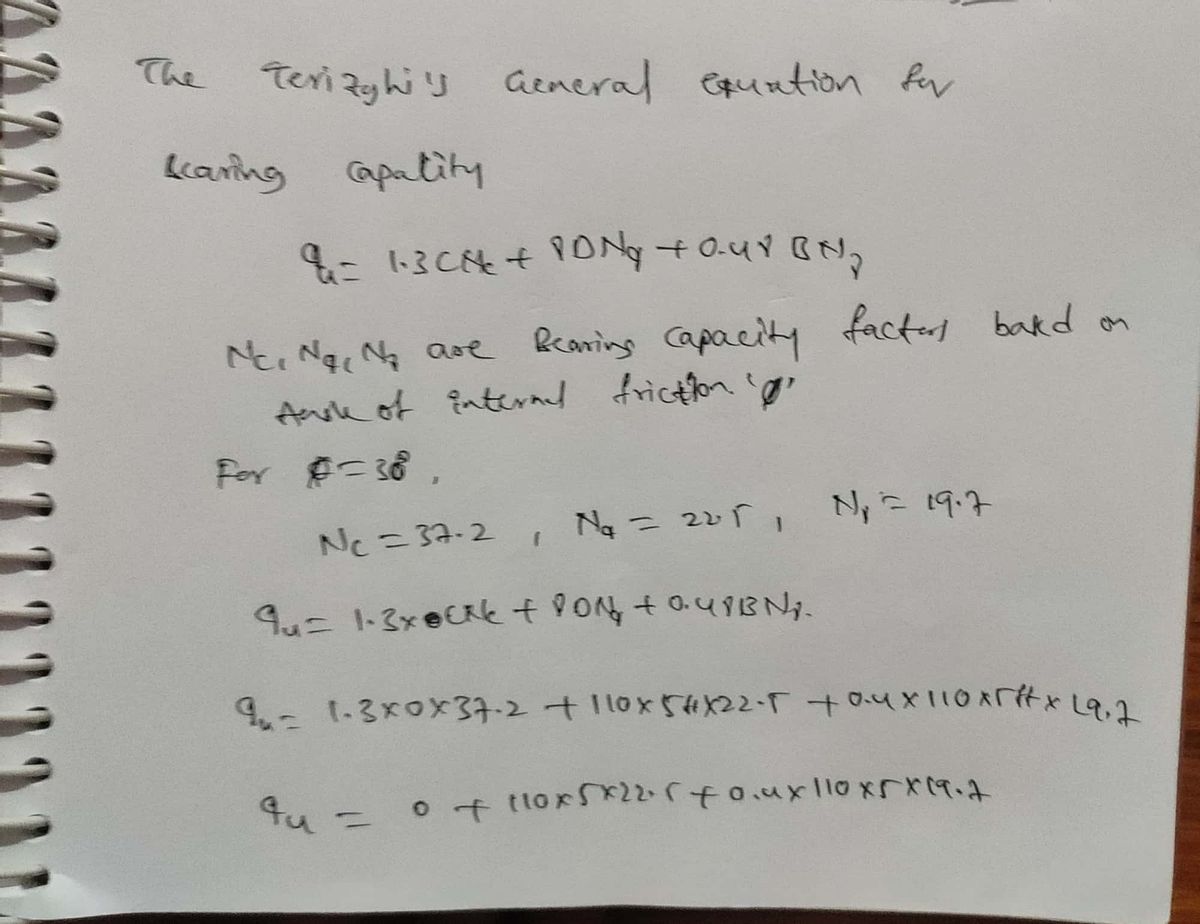 The Terizghi's General equation for
bearing capacity
qu = 1.3 CNc + γDNq + 0.4γ BNγ
Nc, Nq, Nγ are Bearing capacity factors based on
Angle of internal friction 'φ'
For φ = 30°,
Nc = 37.2 , Nq = 22.5 , Nγ = 19.7
qu = 1.3x CNc + γDNq + 0.4γBNγ.
qu = 1.3x0x37.2 + 110x5ftx22.5 + 0.4x110x5ftx19.7
qu = 0 + 110x5x22.5 + 0.4x110x5x19.7